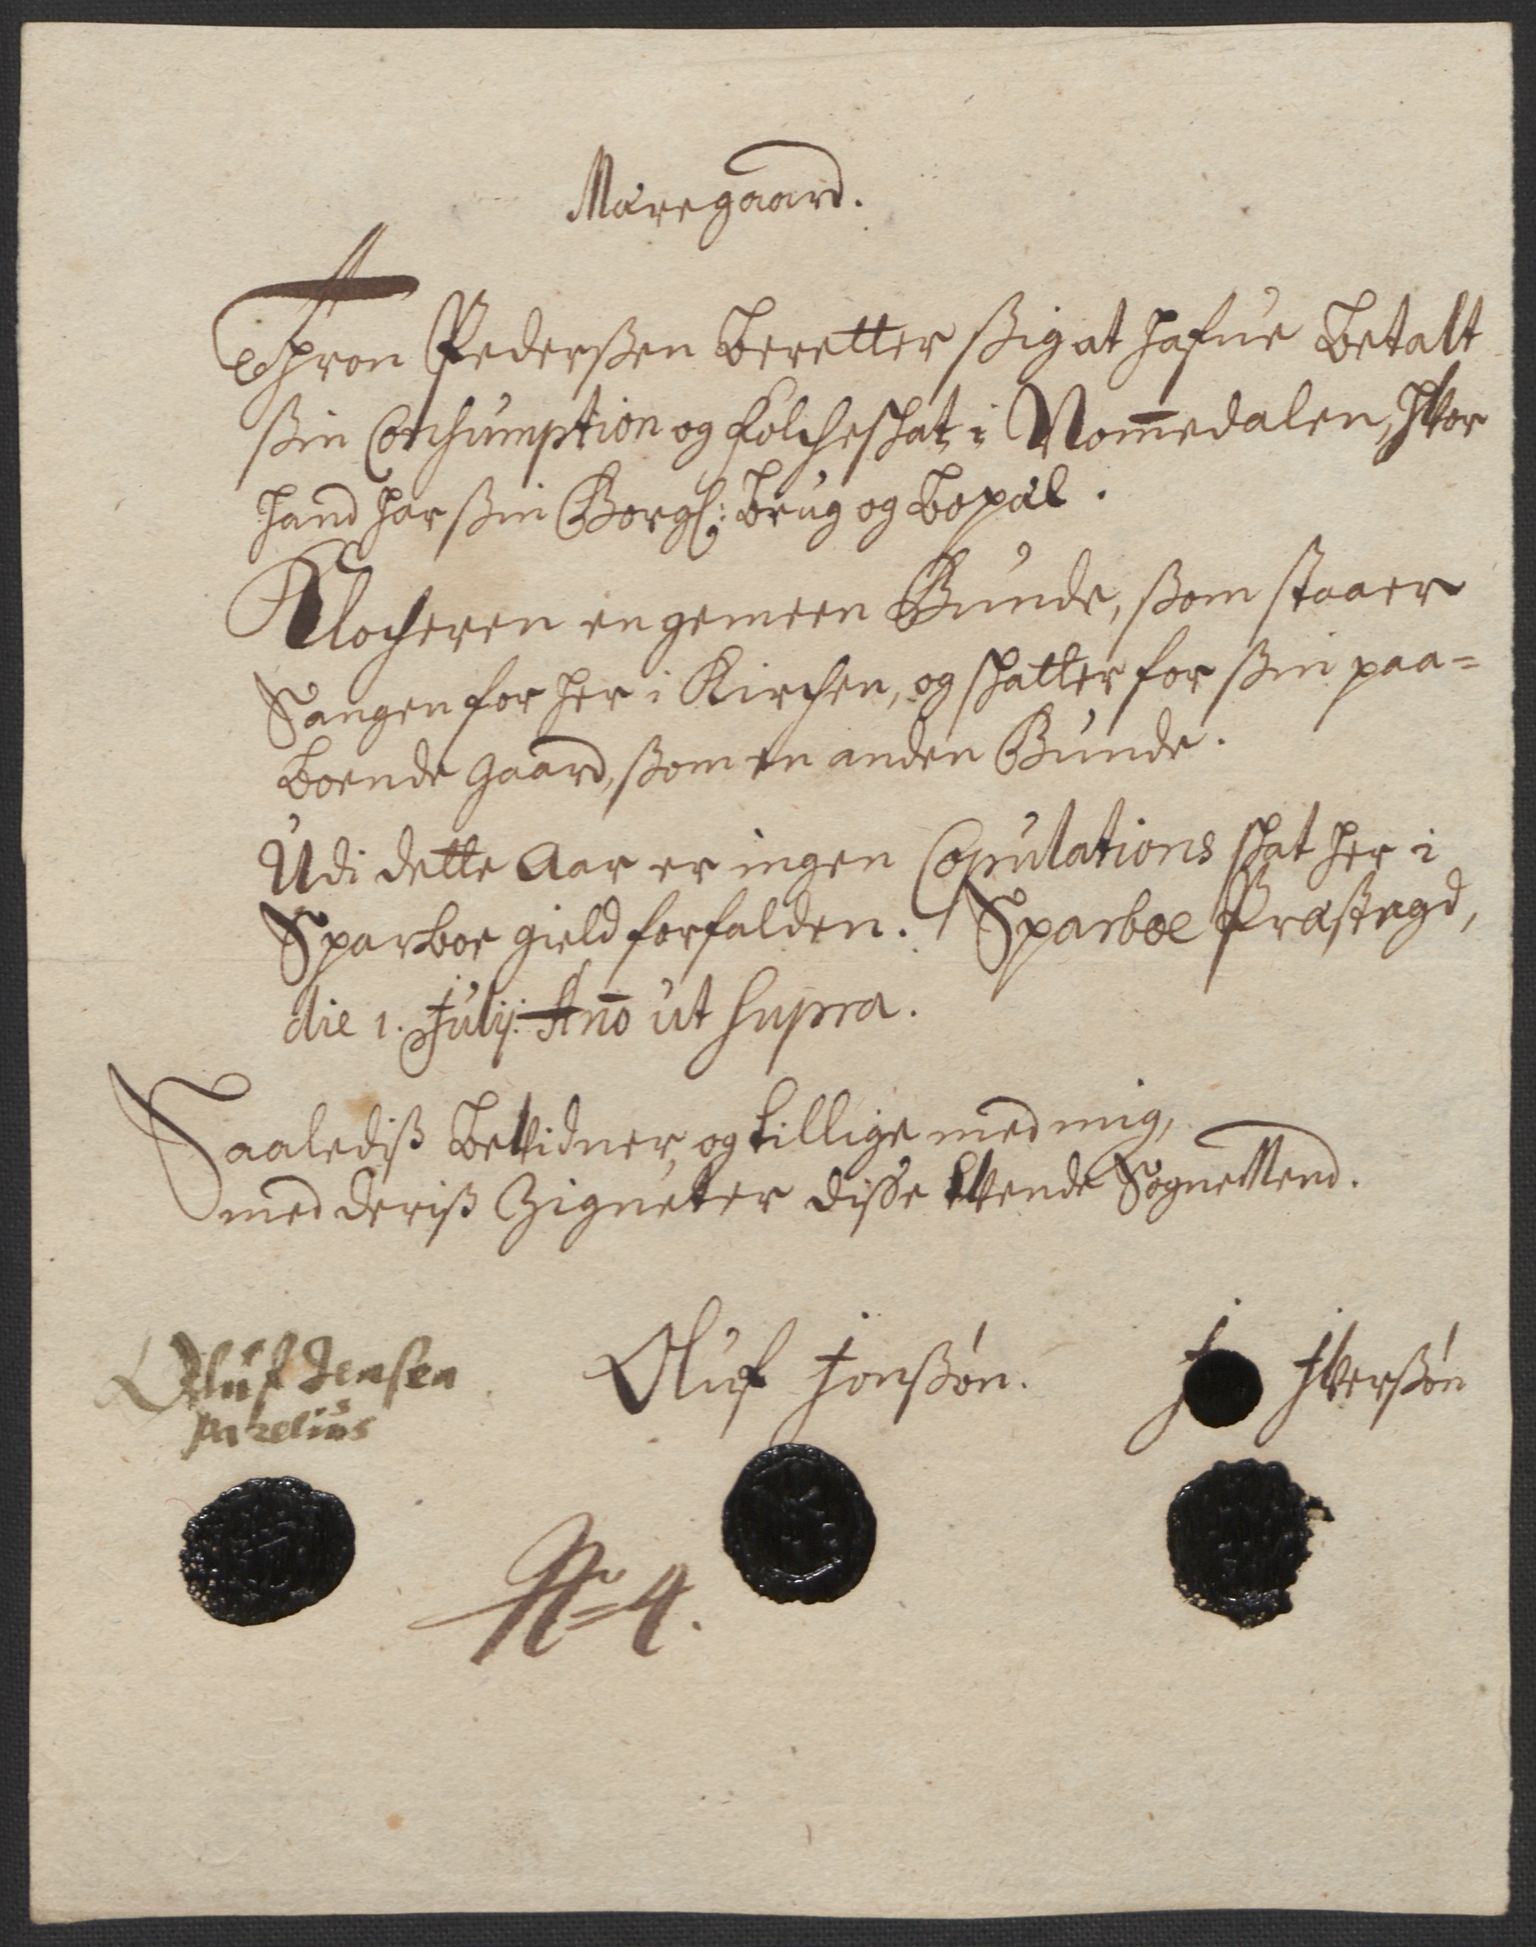 Maregaard.
Thron Pederßen beretter ßig at hafue betalt
ßin Conhumption og folcheskat i Nom̄edalen, hvor
hand har ßin Borgl: brug og bopæl.
Klocheren en gemeen Bunde, ßom staaer
Sangen for her i Kirchen, og skatter for ßin paa=
boende gaard, ßom en anden Bunde.
Udi dette Aar er ingen Copulations skat her i
Sparboe gield forfalden. Sparboe Præstegd,
die 1. Julij: Año ut supra.
Saalediß bevidner, og tillige med mig,
med deriß Zigneter disse tvende Sognemend.
Oluf Jensen Oluf Jonßøn. J Iverßøn
Parelius
No 4.